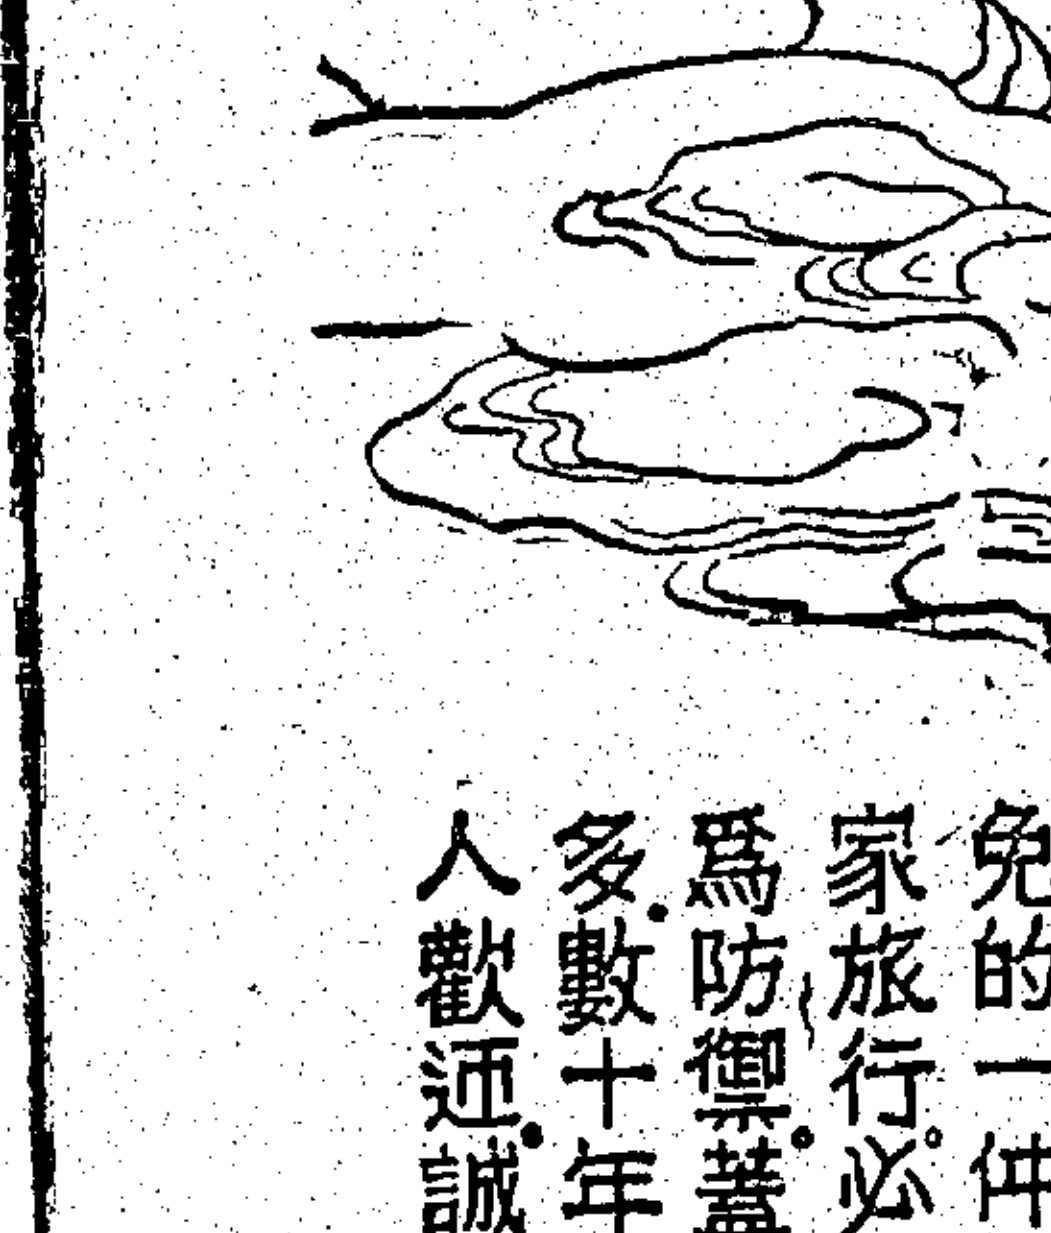 免的一件
家旅行。必
爲防禦。蓋
多。數十年
人歡迊。誠